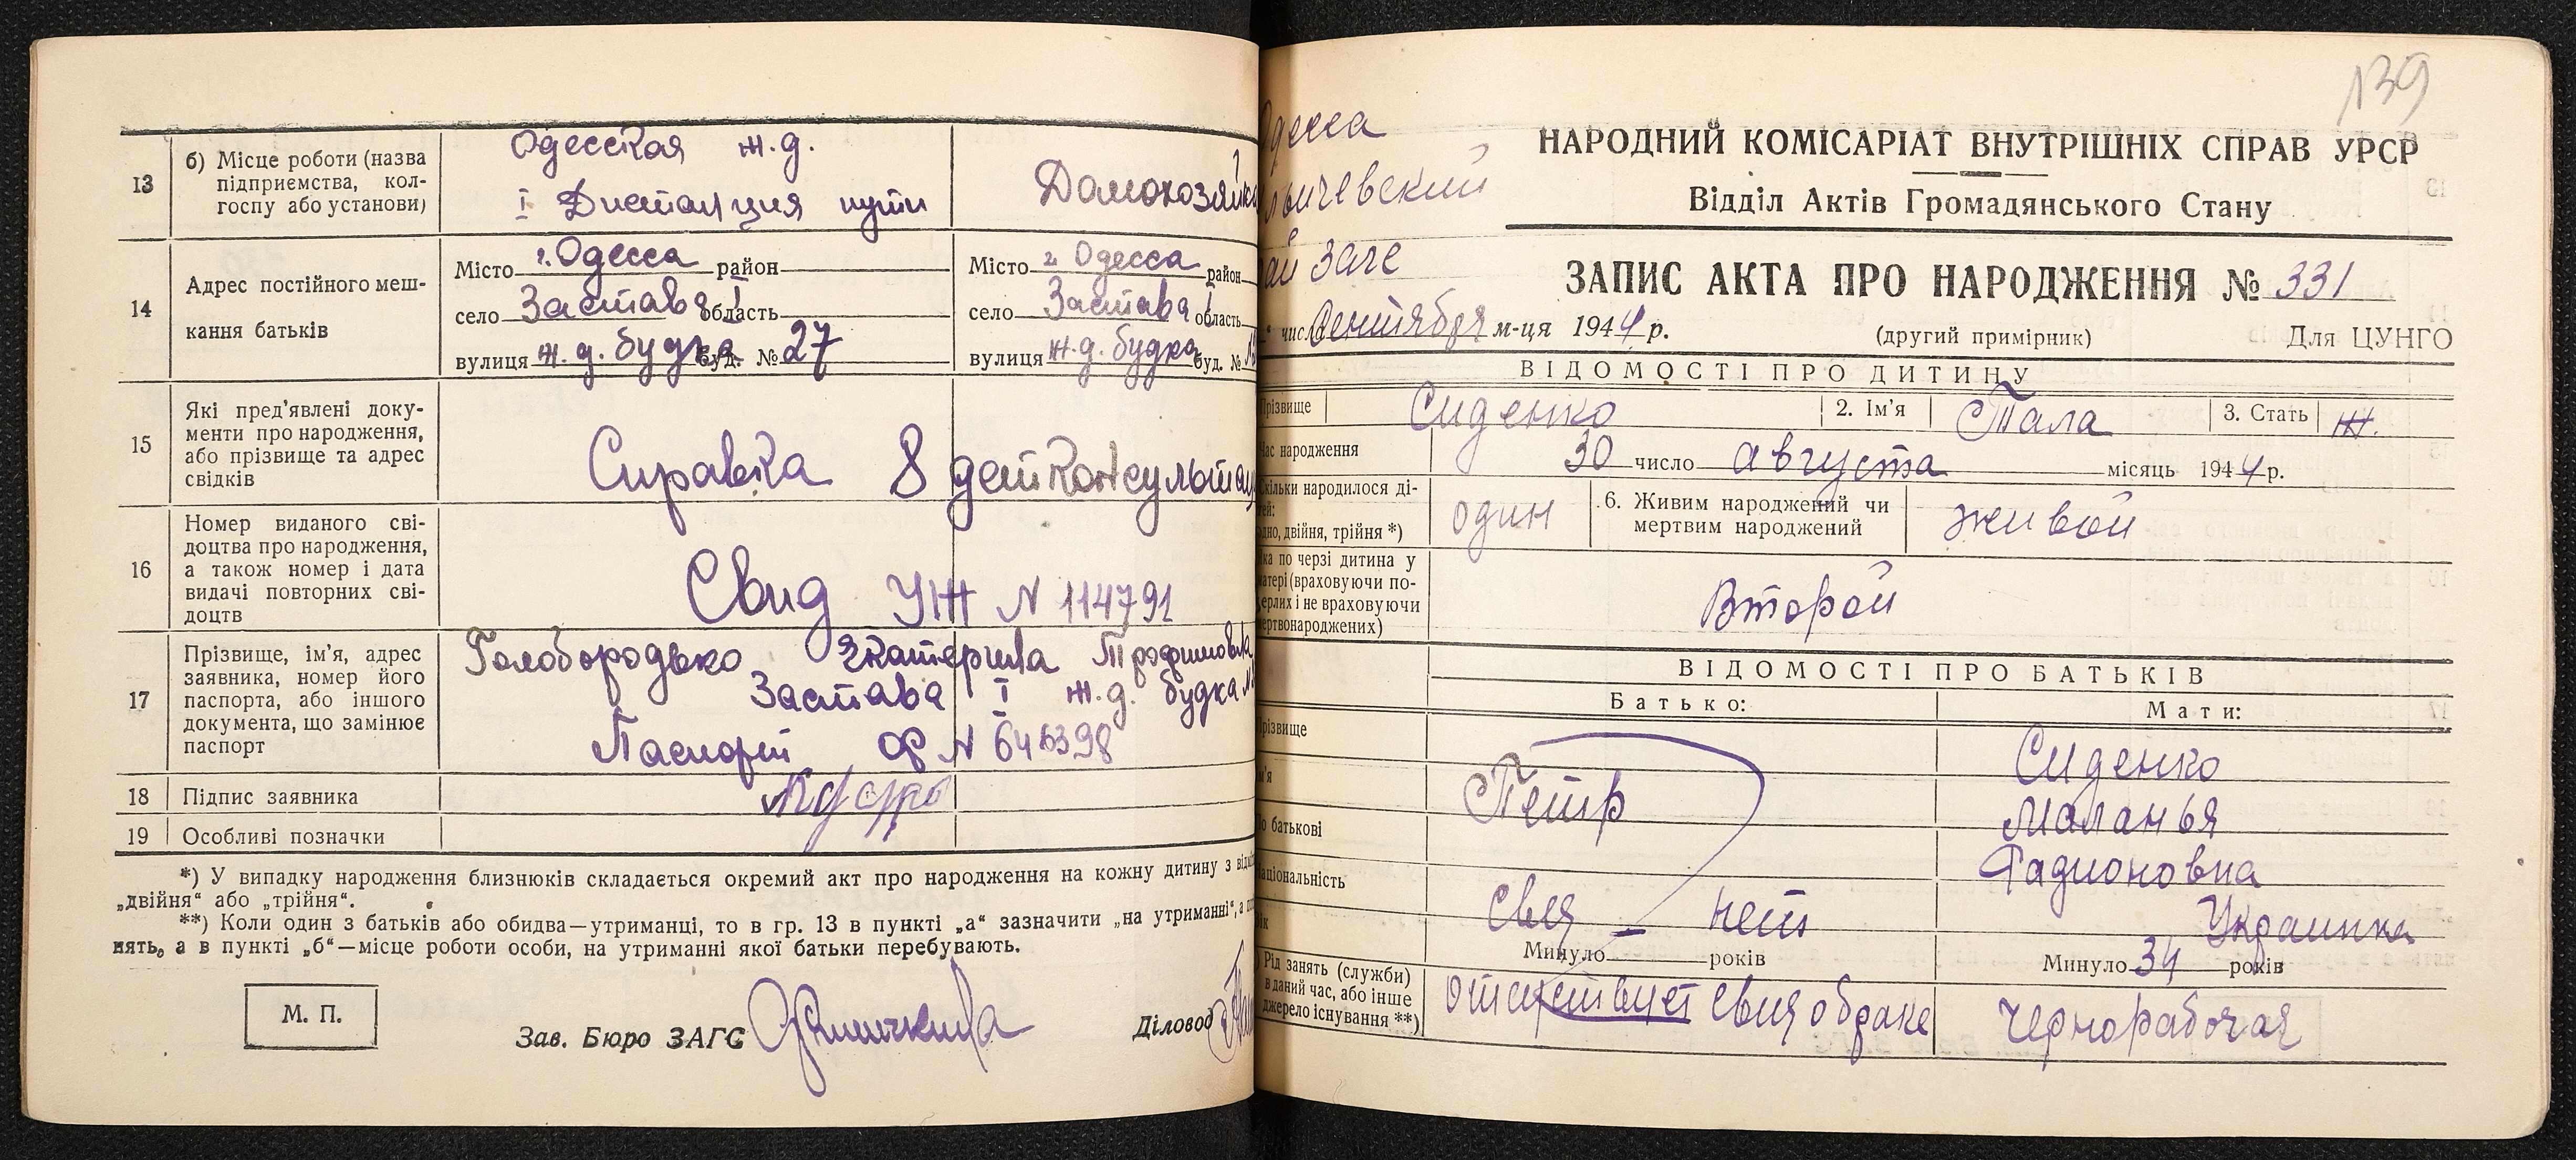 13
б) Місце роботи (назва
підприємства, кол-
госпу або установи)
Одесская ж.д.
I Дистанция пути
Домохозяйка
14
Адрес постійного меш-
кання батьків
Місто г. Одесса район
село Застава I область
вулиця ж.д. будка буд. № 27
Місто г. Одесса район
село Застава I область
вулиця ж.д. будка буд. №
15
Які пред'явлені доку-
менти про народження,
або прізвище та адрес
свідків
Справка 8 детконсультац
16
Номер виданого сві-
доцтва про народження,
а також номер і дата
видачі повторних сві-
доцтв
Свид УЖ N 114791
17
Прізвище, ім'я, адрес
заявника, номер його
паспорта, або іншого
документа, що замінює
паспорт
Голобородько Екатерина Трофимовна
Застава I ж.д. будка
Паспорт N
18
Підпис заявника
19
Особливі позначки
*) У випадку народження близнюків складається окремий акт про народження на кожну дитину з
„двійня“ або „трійня“.
**) Коли один з батьків або обидва—утриманці, то в гр. 13 в пункті „а“ зазначити „на утриманні“, а
нять, а в пункті „б“—місце роботи особи, на утриманні якої батьки перебувають.
М. П.
Зав. Бюро ЗАГС
Діловод
139
Одесса
льичевский
рай Загс
НАРОДНИЙ КОМІСАРІАТ ВНУТРІШНІХ СПРАВ УРСР
Відділ Актів Громадянського Стану
ЗАПИС АКТА ПРО НАРОДЖЕННЯ № 331
числ Сентября м-ця 1944 р.
(другий примірник)
Для ЦУНГО
ВІДОМОСТІ ПРО ДИТИНУ
Прізвище
Сиденко
2. Ім'я
Тала
3. Стать
Ж.
Час народження
30 число августа місяць 1944 р.
Скільки народилося ді-
тей:
одно, двійня, трійня *)
один
6. Живим народжений чи
мертвим народжений
живой
Яка по черзі дитина у
матері (враховуючи по-
мерлих і не враховуючи
мертвонароджених)
Второй
ВІДОМОСТІ ПРО БАТЬКІВ
Батько:
Мати:
Прізвище
Сиденко
Ім'я
Петр
Маланья
По батькові
Радионовна
Національність
Украинка
Вік
Свед – нет
Минуло років
Минуло 34 років
Рід занять (служби)
в даний час, або інше
джерело існування **)
отсутствует свид о браке
Чернорабочая